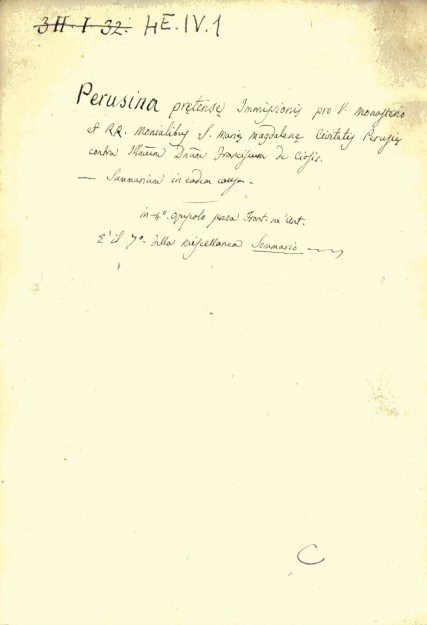 3H-I-32. HE.IV.1
Perusina pretensę Immissionis pro V. Monasterio
et RR. Monialibus S. Marię Magdalenę Civitatis Perusię
contra Illmũm Dnũm Franciscum de
— Summarium in eadem causa.
in 4º. senza Front. ne
È il 7º. della miscellanea Sommario
C